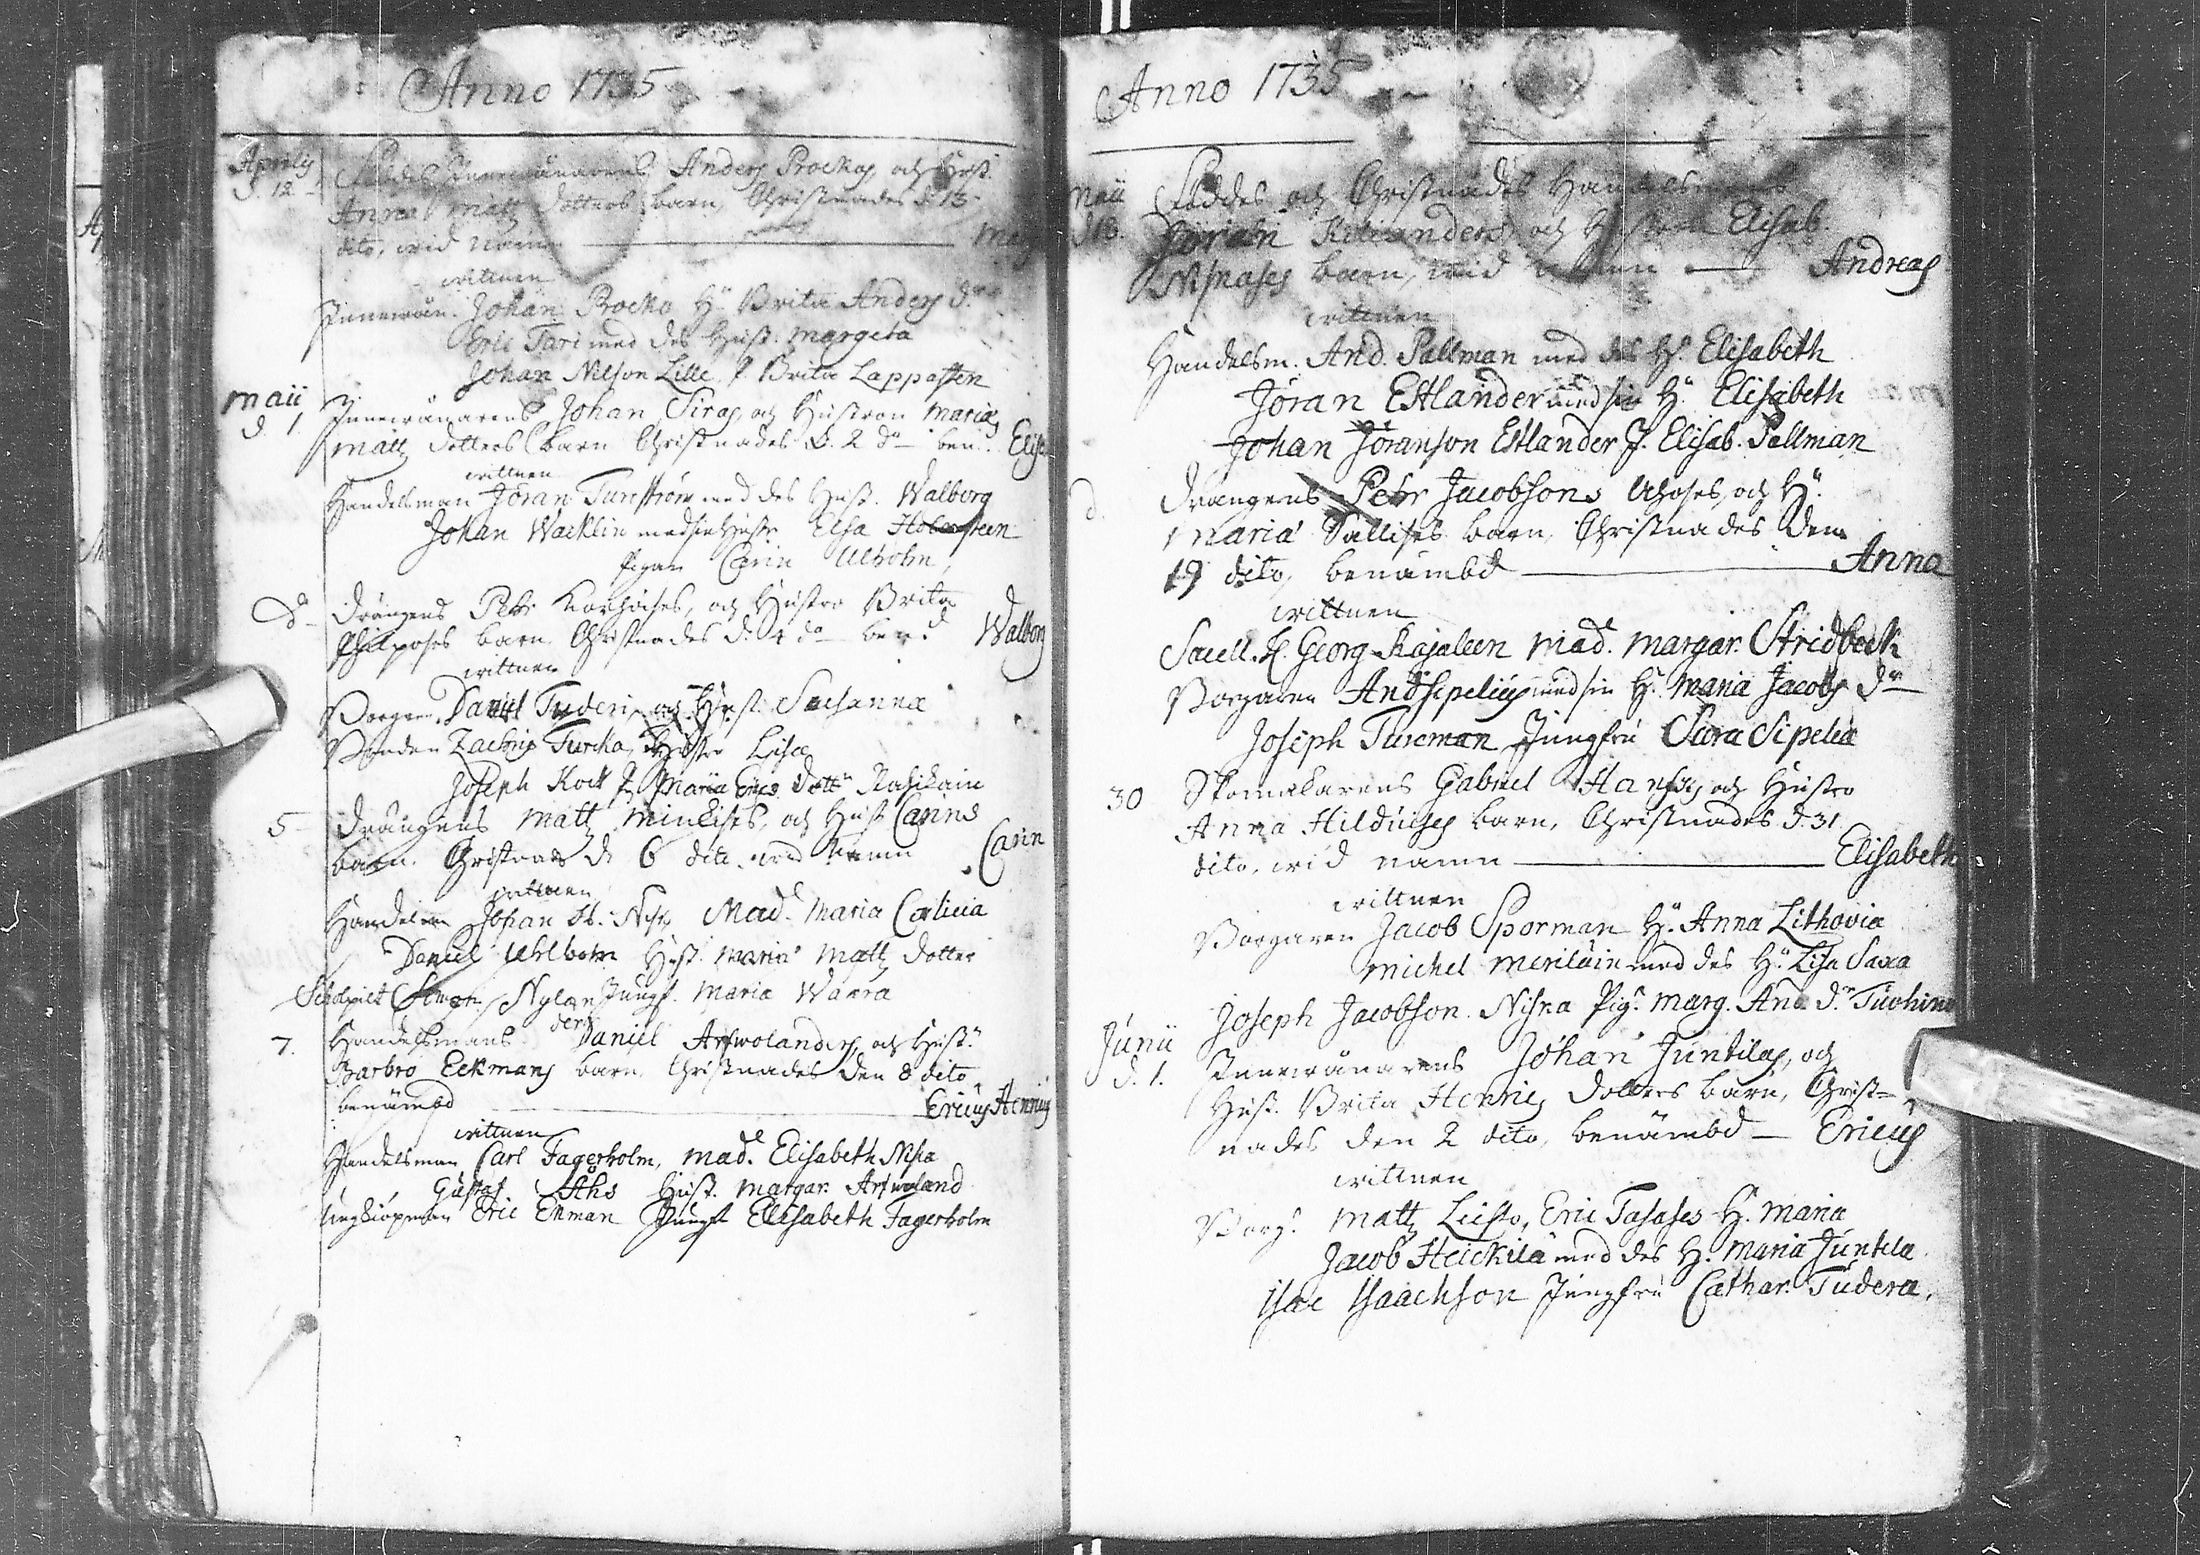 Anno 1735
Aprilis
d. 12
Föddes Innewånarens Anders Prockos och Hust.
Anna Matz dotters barn, Christnades d. 13
dito, wid namn
wittnen
Innewån. Johan Procko Hu Brita Anders dr
Eric Tari med des Hust. Margeta
Johan Nilson Lille P. Brita Lappasten
Maii
d. 1
Innewånarens Johan Siras och Hustron Maria
Matz dotters barn Christnades d. 2 do ben.
wittnen
Handelsman Jöran Turström med des Hust. Walborg
Johan Wacklin med sin Hustr. Elsa
Pigan Carin Ulholm
d Drängens Petr och Hustro Brita
barn Christnades d. 4 do ben.d Walborg
wittnen
Borgaren Daniel Tuderus och Hust. Susanna
Bonden Zachris Turcka, Hustr Lisa
Joseph Kock P. Maria Erics dottr
5 Drängens Matz och Hust Carins
barn. Christnades d. 6 dito wid namn Carin
wittnen
Handelsm Johan Mad. Maria Corticia
Daniel Uhlholm Hust. Maria Matz dotter
Simon Nylander Jungf. Maria Waara
7. Handelsmans Daniel Arfwolanders och Hustr
Barbro Eckmans barn, Christnades den 8 dito
benämbd Ericus Henric
wittnen
Handelsman Carl Fagerholm, Mad. Elisabeth Niska
Gustaf Åhs Hust. Margar. Arfwoland
Ungkiöpman Eric Ekman Jungf Elisabeth Fagerholm
Anno 1735
Maii
d 13.
Föddes och Christnades Handelsmans
och Hustrus Elisab.
barn, wid namn Andreas
wittnen
Handelsm. And. Pallman med des Hu. Elisabeth
Jöran Estlander med sin Hu Elisabeth
Johan Jöranson Estlander J. Elisab. Pallman
d. Drängens Petr Jacobsons och Hu.
Maria Sallises barn, Christnades den
19 dito, benämbd Anna
wittnen
Georg Kajaleen Mad. Margar. Stridbeck
Borgaren And Sipelius med sin Hu Maria Jacobs dr
Joseph Tureman Jungfru Sara Sipelia
30 Skomakarens Gabriel Hansons och Hustro
Anna barn, Christnades d. 31
dito, wid namn Elisabeth
wittnen
Borgaren Jacob Sporman Hu. Anna Lithovia
Michel Meriläin med des Hu Lisa Saxa
Joseph Jacobson Niska Pig. Marg. And. dr
Junii
d. 1.
Innewånarens Johan Juntilas, och
Hust. Brita Henrics dotters barn, Christ=
nades den 2 dito, benämbd Ericus
wittnen
Borg. Matz Liisto, Eric Tasases H. Maria
Jacob Heickilä med des H. Maria Juntila
Isac Isaachson Jungfru Cathar. Tudera,